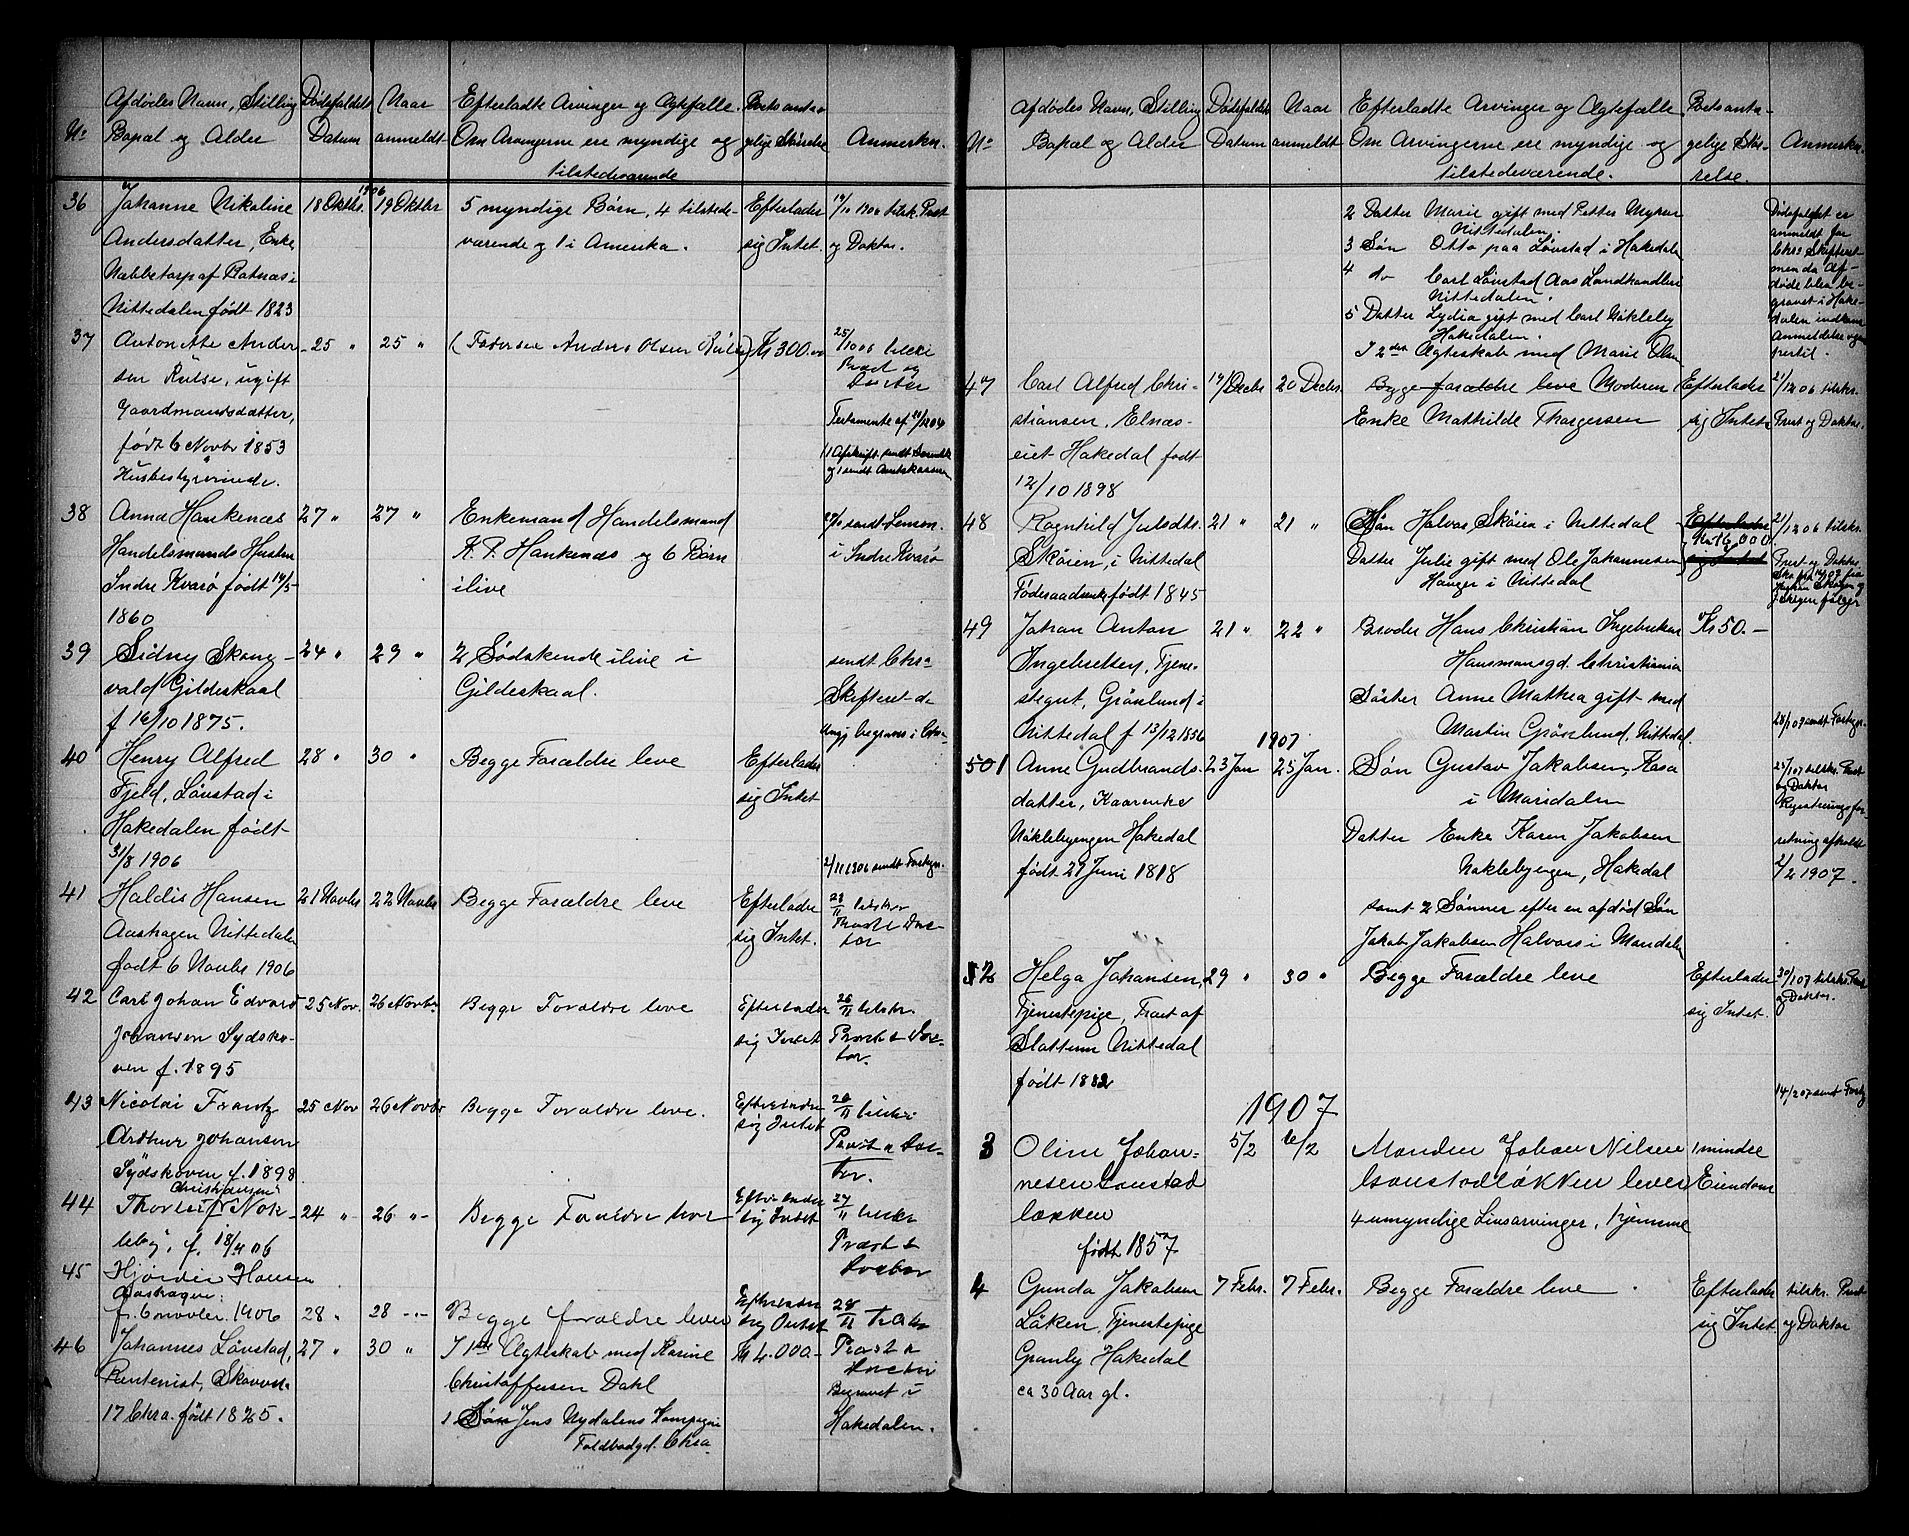 No
Afdødes Navn, Stilling
Bopæl og Alder
Dødsfaldets
Datum
Naar
anmeldt
Efterladte Arvinger og Ægtefælle.
Om Arvingerne ere myndige og
tilstedeværende
Boets anta-
gelige Størrelse
Anmerkn.
36
Johanne Nikoline
Andersdatter, Enke
Nabbetorp af Rotnæs i
Nittedalen født 1823
1906
18 Oktbr.
19 Oktbr
5 myndige Børn, 4 tilstede-
værende og 1 i Amerika.
Efterlader
sig Intet.
19/10 1906 tilsk. Præst
og Doktor.
37
Antonette Ander
sen Rulse, ugift
Gaardmandsdatter,
født 6 Novbr 1853
Husbestyrerinde.
25 "
25 "
(Faderen Anders Olsen Rulse)
Kr 300.00
25/10 06 tilskr
Præst og
Doctor
Testamente af 20/12 04
1 Afskrift sendt
og 1 sendt Amtskassern
38
Anna Hankenæs
Handelsmands Hustru
Indre Kvarø født 14/5
1860
27 "
27 "
Enkemand Handelsmand
K. P. Hankenæs og 6 Børn
ilive
sendt Lensm.
i Indre Kvarø
39
Sidny Skog-
vald Gildeskaal
f 16/10 1875.
24 "
29 "
2 Sødskende ilive i
Gildeskaal.
sendt Chra
Skifteret da
begraves i Chra
40
Henry Alfred
Fjeld, Lønstad i
Hakedalen født
31/8 1906
28 "
30 "
Begge Forældre leve
Efterlader
sig Intet
2/11 1906 sendt Forkyn.
41
Haldis Hansen
Aashagen Nittedalen
født 6 Novbr 1906
21 Novbr
22 Novbr
Begge Forældre leve
Efterlader
sig Intet.
23/11 tilskr
Præst & Doc-
tor
42
Carl Johan Edvard
Johansen Sydsko-
ven f. 1895
25 Nov.
26 Novbr.
Begge Forældre leve
Efterlader
sig Intet
26/11 tilskr
Præst & Doc-
tor.
43
Nicolai Frantz
Arthur Johansen
Sydskoven f. 1898
25 Nov
26 Novbr
Begge Forældre leve.
Efterlader
sig Intet
26/11 tilskr
Præst & Doc-
tor.
44
Christiansen
Thorleif Nøk-
leby, f. 18/11 06
24 "
26 "
Begge Forældre leve
Efterlader
sig Intet
27/11 tilskr
Præst &
Doctor
45
Hjørdis Hansen
Aashagen.
f. 6 novbr. 1906
28 "
28 "
Begge forældre lever
Efterlader
sig Intet
28/11 tilskr
Præst &
Doctor
46
Johannes Lønstad,
Rentenist, Skovvn.
17 Chra. født 1825.
27 "
30 "
I 1ste Ægteskab med Karine
Christoffersen Dahl
1 Søn Jens Nydalens Kompagni
Toldbodgd. Chra
Kr 4.000.-
Begravet i
Hakedalen.
No
Afdødes Navn, Stilling
Bopæl og Alder
Dødsfaldets
Datum
Naar
anmeldt
Efterladte Arvinger og Ægtefælle
Om Arvingerne ere myndige og
tilstedeværende.
Boets anta-
gelige Stør-
relse.
Anmerkn.
2 Datter Marie gift med Petter Myhrer
Nittedalen.
3 Søn Otto paa Lønstad i Hakedalen
4 do Carl Lønstad Aas Landhandler
Nittedalen.
5 Datter Lydia gift med Carl Nøkleby
Hakedalen.
I 2den Ægteskab med Marie Olsen
Dødsfaldet er
anmeldt for
Chra Skifteret
men da Af-
døde blev be-
gravet i Hake-
dalen indkom
Anmeldelse ogsaa
hertil.
47
Carl Alfred Chri-
stiansen, Elnæs-
eiet Hakedal født
12/10 1898
19/ Decbr
20 Decbr.
Begge forældre leve Moderen
Enke Mathilde Thorgersen
Efterlader
sig Intet
21/12 06 tilskr.
Præst og Doktor.
48
Ragnhild Julsdtr.
Skøien, i Nittedal
Føderaadsenke født 1845
21 "
21 "
Søn Halvor Skøien i Nittedal
Datter Julie gift med Ole Johannesen
Hauger i Nittedal
Efterlader
Kr 16,000.
sig Intet
21/12 06 tilskr.
Præst og Doktor
49
Johan Anton
Ingebretsen, Tjene-
stegut, Grønlund i
Nittedal f 13/12 1856
21 "
22 "
Broder Hans Christian Ingebretsen
Hausmansgd. Christiania
Søster Anne Mathea gift med
Martin Grønlund, Nittedal.
Kr 50.-
28/1 09 sendt Forkyn.
1907
501
Anne Gudbrands-
datter, Kaarenke
Nøklebyengen Hakedal
født 27 Juni 1818
23 Jan
25 Jan.
Søn Gustav Jakobsen, Kasa
i Maridalen
Datter Enke Karen Jakobsen
Nøklebyengen, Hakedal
samt 2 Sønner efter en afdød Søn
Jakob Jakobsen Halvors i Maridalen
25/1 07 tilskr. Præst
og Doktor
Registreringsfor
retning afholdt
2/2 1907.
52
Helga Johansen,
Tjenestepige, Træet af
Slattum Nittedal
født 1882
29 "
30 "
Begge Forældre leve
Efterlader
sig Intet.
30/1 07 tilskr. Præst
og Doktor.
14/2 07 sendt Forkyn
1907
3
Oline Johan-
nesen Lønstad
løkken
født 1857
5/2
6/2
Manden Johan Nilsen
Lønstadløkken lever
4 umyndige Livsarvinger, hjemme
1 mindre
Eiendom
4
Gunda Jakobsen
Løken, Tjenestepige
Granly Hakedal
ca 30 Aar gl.
7 Febr.
7 Febr.
Begge Forældre leve
Efterlader
sig Intet.
tilskr. Præst
og Doktor